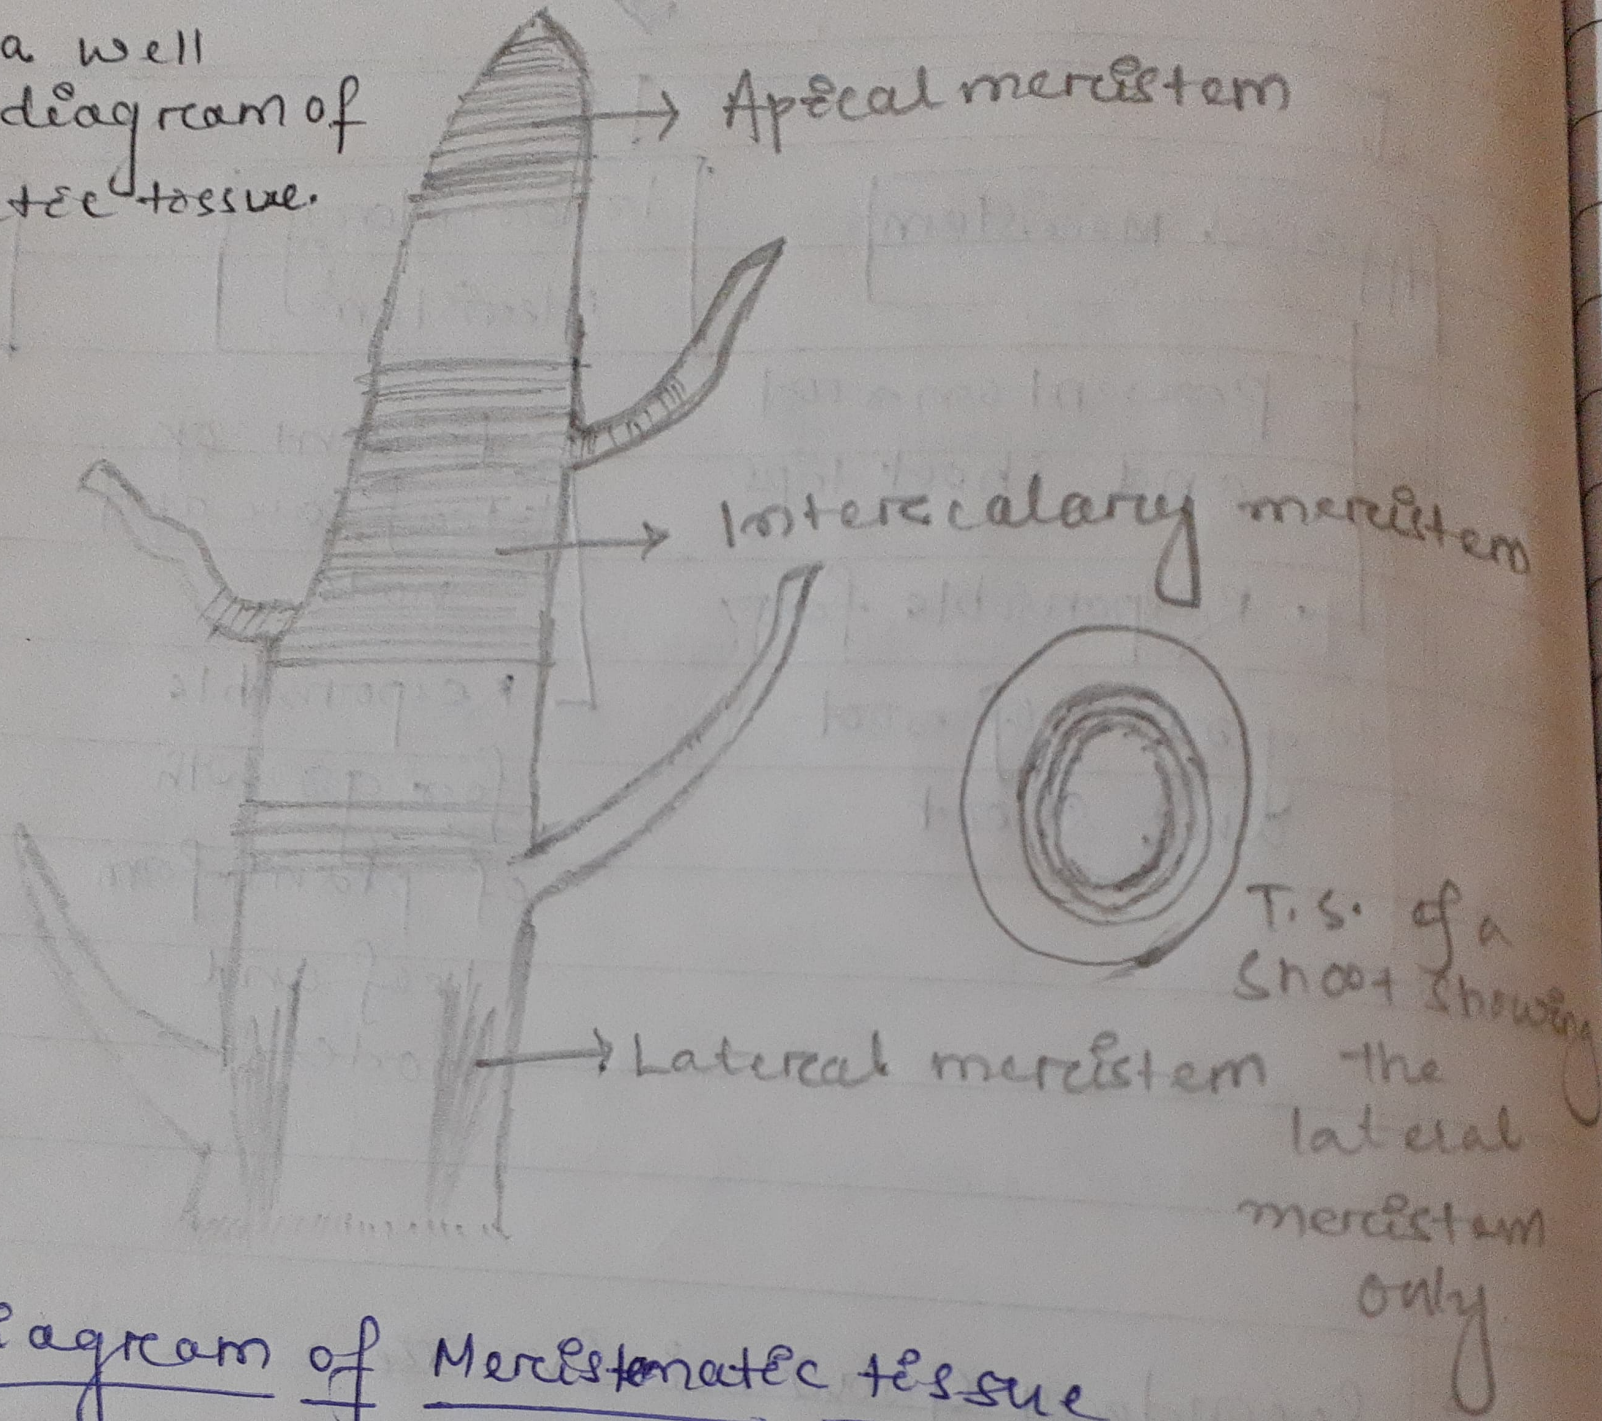 a well
diagram of
tic tissue.
Apical meristem
Intercalary meristem
Lateral meristem
T.S. of a
Shoot showing
the
lateral
meristem
only
iagram of Meristematic tissue